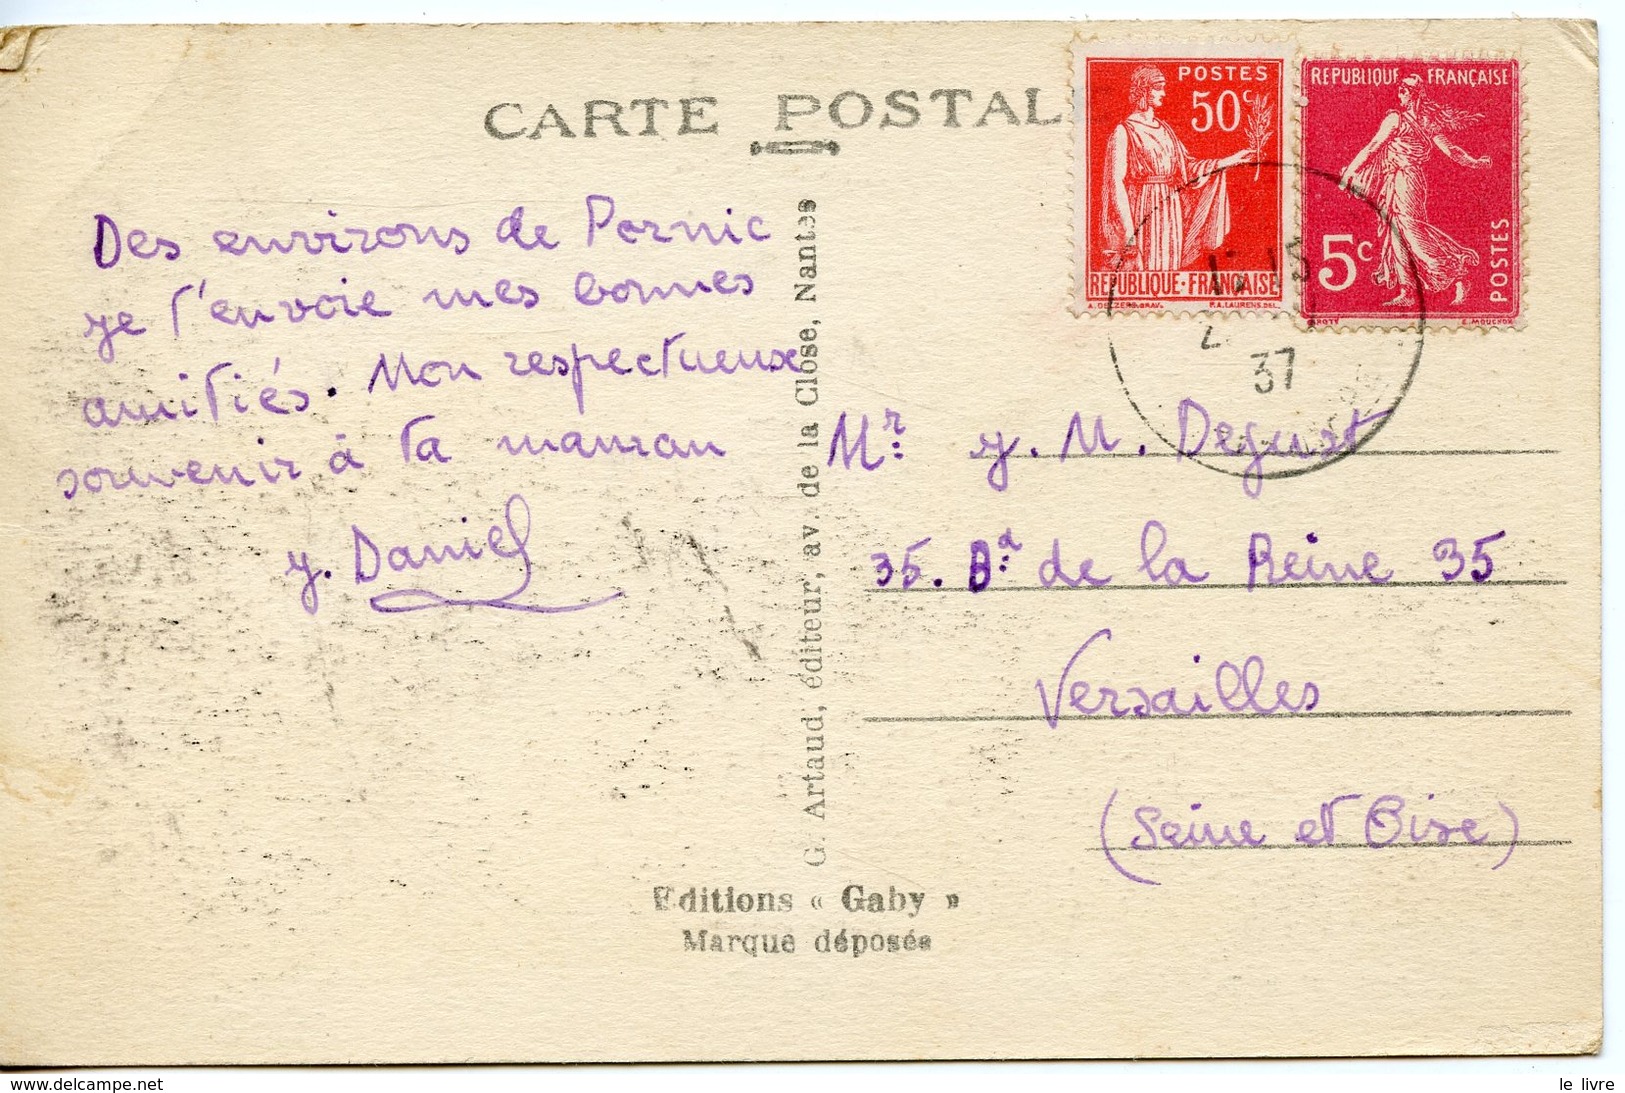 CARTE POSTAL
POSTES
50c
REPUBLIQUE·FRANÇAISE
P.A.LAURENS.DEL.
REPUBLIQUE FRANÇAISE
5c
POSTES
E. MOUCHON
15
37
Des environs de Pornic
je t'envoie mes bonnes
amitiés. Mon respectueux
souvenir à ta maman
J. Daniel
G. Artaud, éditeur, av. de la Close, Nantes
Mr J. M. Dejust
35. Bd de la Reine 35
Versailles
(Seine et Oise)
Editions « Gaby »
Marque déposés
delcampe.net
le livre